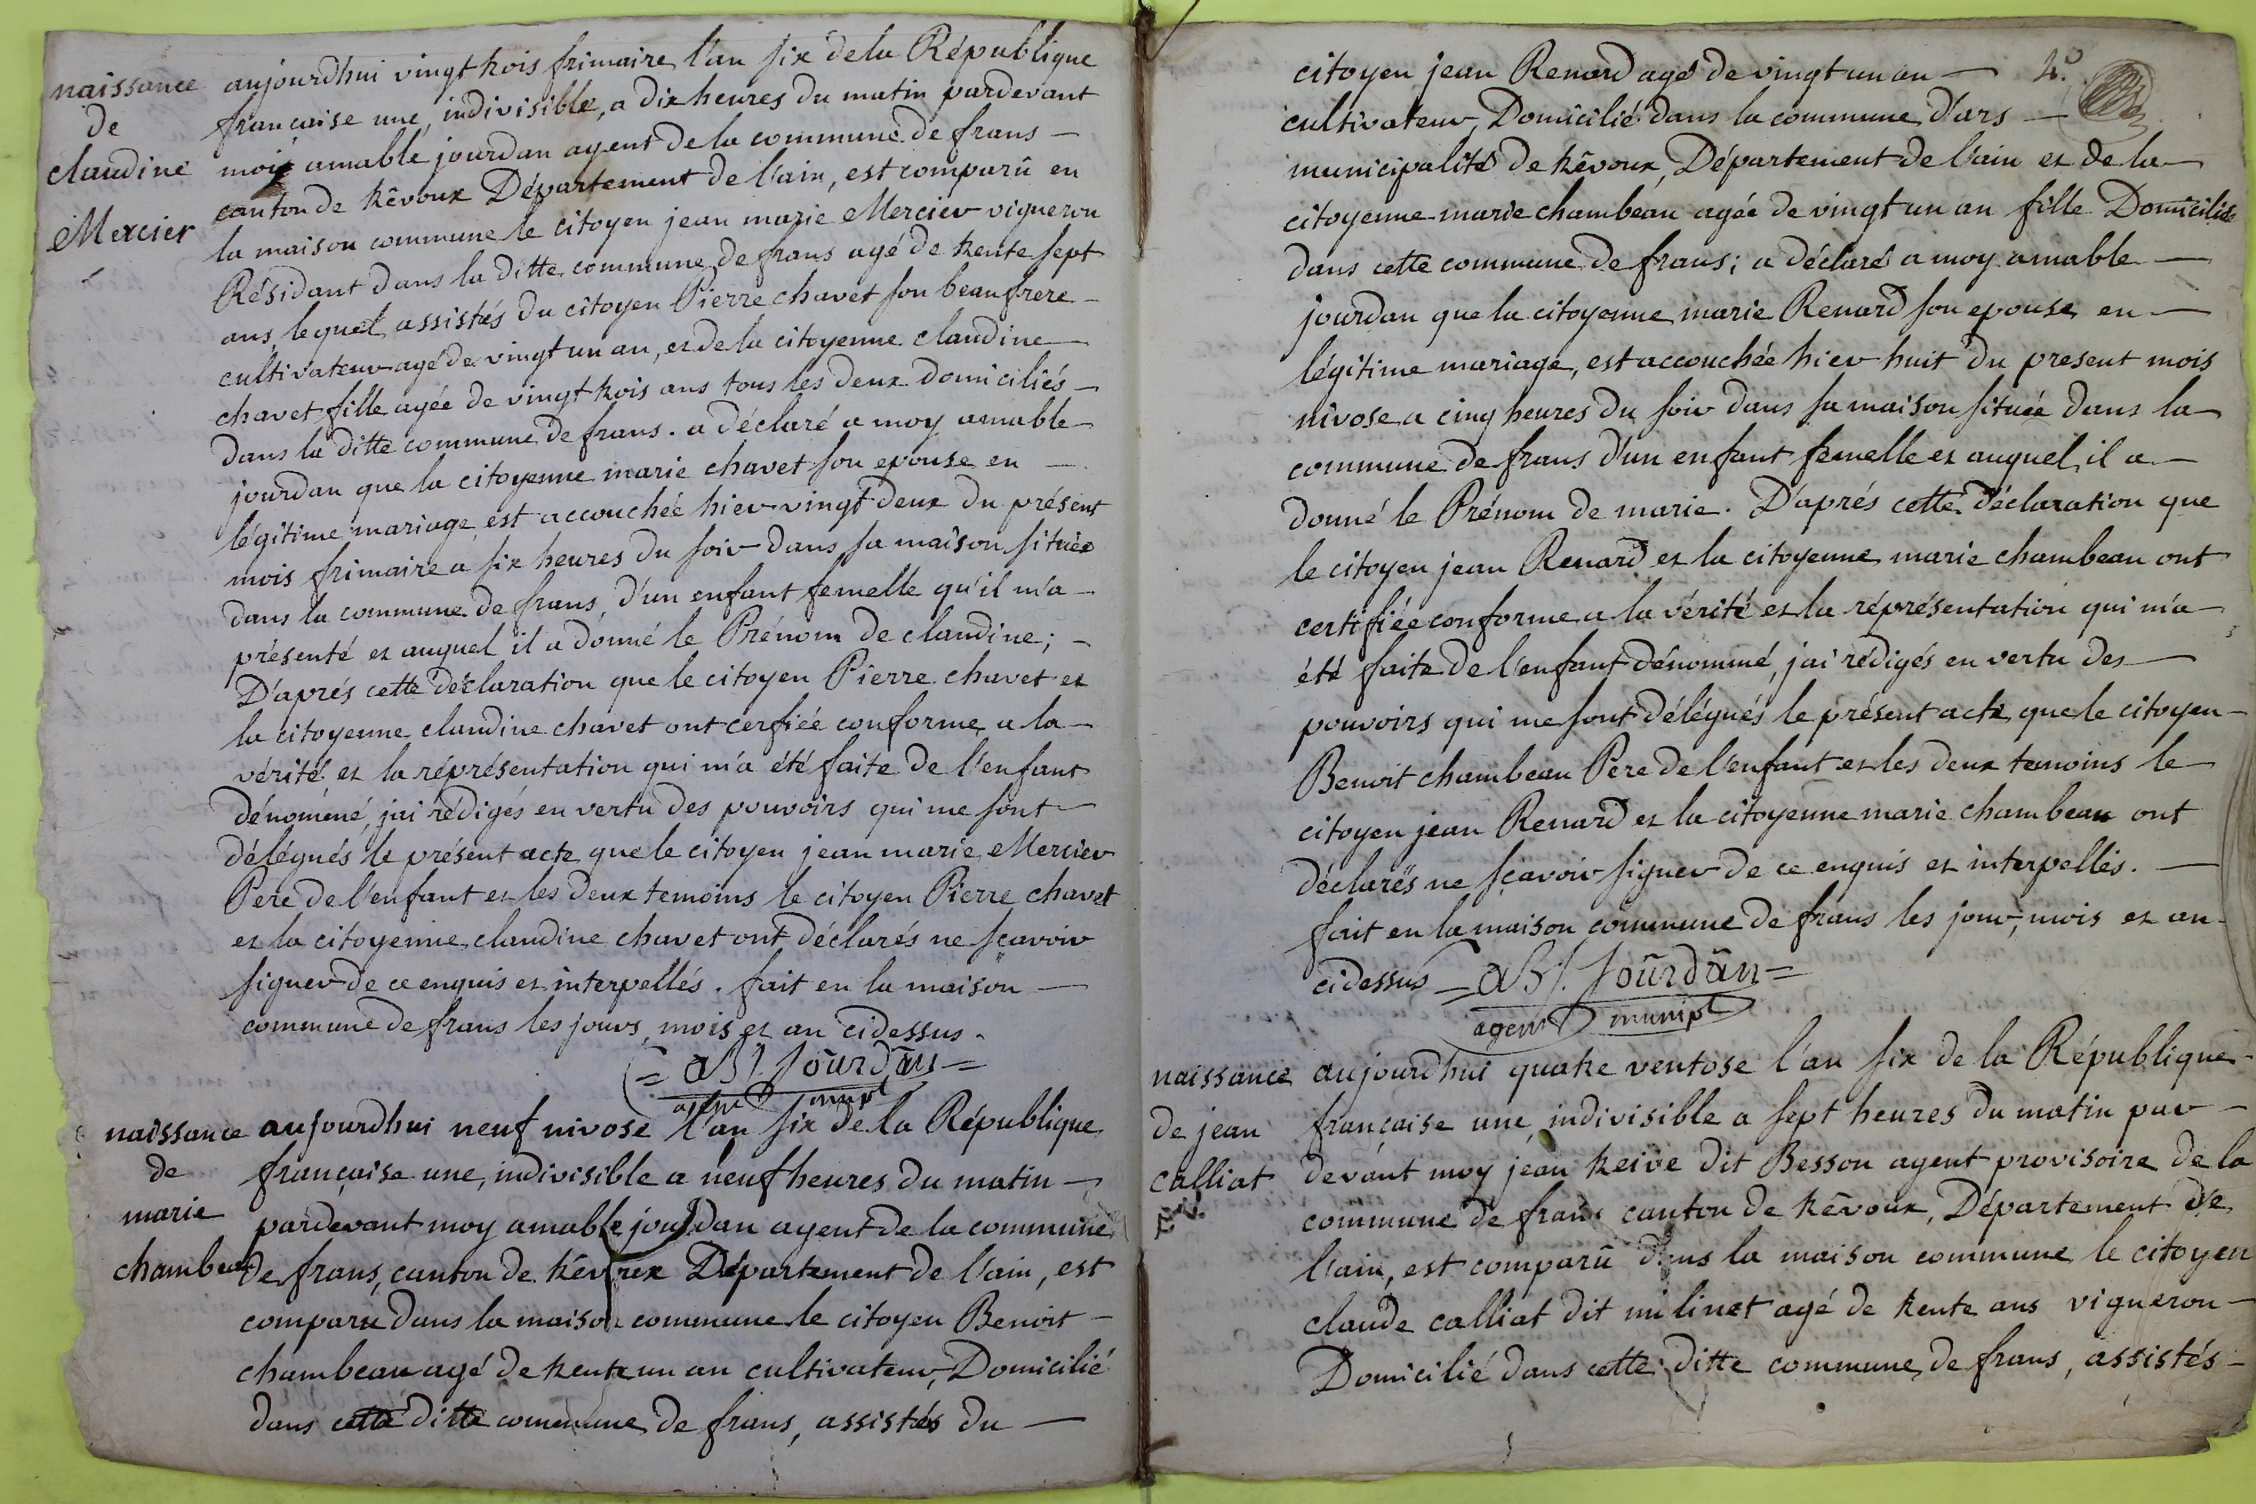 naissance
de
claudine
Mercier
aujourdhui vingt trois frimaire l'an six de la République
française une, indivisible, a dix heures du matin pardevant
moy amable jourdan agent de la commune de frans —
canton de trévoux Département de l'ain, est comparû en
la maison commune le citoyen jean marie Mercier vigneron
Résidant dans la ditte commune de frans agé de trente sept
ans, lequel assistés du citoyen Pierre chavet son beaufrere —
cultivateur agé de vingt un an, et de la citoyenne claudine —
chavet fille agée de vingt trois ans tous les deux domiciliés —
dans la ditte commune de frans. a déclaré a moy amable —
jourdan que la citoyenne marie chavet son epouse en —
légitime mariage est accouchée hier vingt deux du présent
mois frimaire a six heures du soir dans sa maison située
dans la commune de frans, d'un enfant femelle qu'il m'a —
présenté et auquel il a donné le Prénom de claudine; —
D'aprés cette déclaration que le citoyen Pierre chavet et
la citoyenne claudine chavet ont cerfiée conforme a la —
vérité et la réprésentation qui m'a été faite de l'enfant
dénomené, jai rédigés en vertu des pouvoirs qui me sont —
délégués le présent acte que le citoyen jean marie Mercier
Pere de l'enfant et les deux temoins le citoyen Pierre chavet
et la citoyenne claudine chavet ont déclarés ne sçavoir
signer de ce enquis et interpellés. fait en la maison —
commune de frans les jours, mois et an cidessus.
= aBl. Joûrdân =
agent munpl
naissance
de
marie
chambeau
aujourdhui neuf nivose l'an six de la République
française une, indivisible a neuf heures du matin —
pardevant moy amable jourdan agent de la commune
de frans, canton de trévoux Département de l'ain, est
comparu dans la maison commune le citoyen Benoit —
chambeau agé de trente un an cultivateur, Domicilié
dans cette ditte commune de frans, assistés du —
2.°
citoyen jean Renard agé de vingt un an —
cultivateur, Domicilié dans la commune d'ars —
municipalité de trévoux, Département de l'ain et de la —
citoyenne marie chambeau agée de vingt un an fille Domiciliée
dans cette commune de frans; a déclaré a moy amable —
jourdan que la citoyenne marie Renard son epouse en —
légitime mariage, est accouchée hier huit du present mois
nivose a cinq heures du soir dans sa maison située dans la
commune de frans d'un enfant femelle et auquel il a —
donné le Prénom de marie. D'aprés cette déclaration que
le citoyen jean Renard et la citoyenne marie chambeau ont
certifiée conforme a la vérité et la réprésentation qui m'a —
été faite de l'enfant dénommé, j'ai rédigés en vertu des —
pouvoirs qui me sont délégués le présent acte que le citoyen —
Benoit chambeau Pere de l'enfant et les deux temoins le —
citoyen jean Renard et la citoyenne marie chambeau ont
déclarés ne sçavoir signer de ce enquis et interpellés. —
fait en la maison commune de frans les jour, mois et an
cidessus = aBl. Joûrdân =
agent munipl
naissance
de jean
calliat
aujourdhui quatre ventose l'an six de la République
française une indivisible a sept heures du matin par —
devant moy jean treive dit Besson agent provisoire de la
commune de frans canton de trévoux, Département de
l'ain, est comparû dans la maison commune le citoyen
claude calliat dit milinet agé de trente ans vigneron —
Domicilié dans cette ditte commune de frans, assistés —